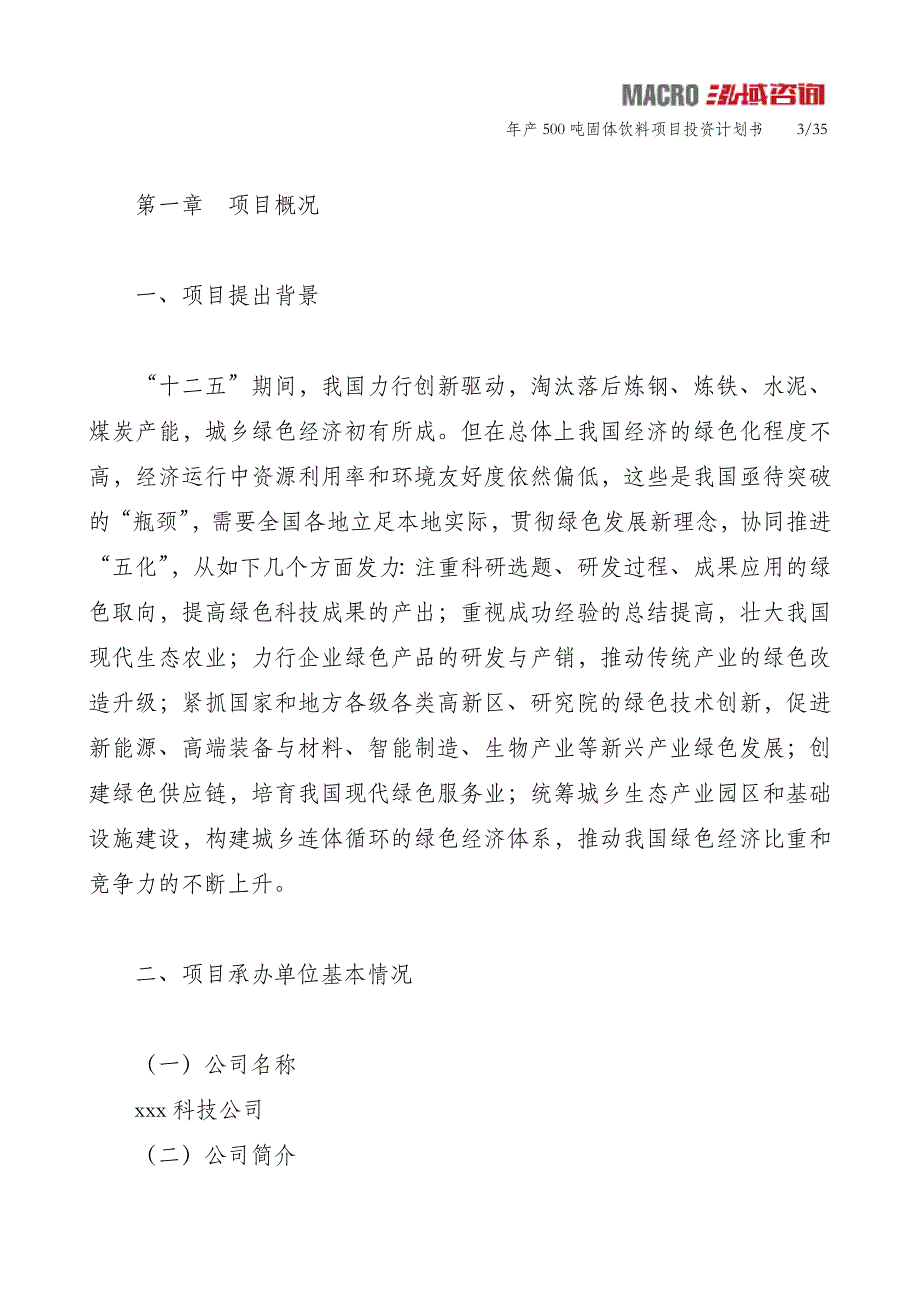 MACRO 泓域咨询
年产 500 吨固体饮料项目投资计划书 3/35
第一章 项目概况
一、项目提出背景
“十二五”期间，我国力行创新驱动，淘汰落后炼钢、炼铁、水泥、
煤炭产能，城乡绿色经济初有所成。但在总体上我国经济的绿色化程度不
高，经济运行中资源利用率和环境友好度依然偏低，这些是我国亟待突破
的“瓶颈”，需要全国各地立足本地实际，贯彻绿色发展新理念，协同推进
“五化”，从如下几个方面发力：注重科研选题、研发过程、成果应用的绿
色取向，提高绿色科技成果的产出；重视成功经验的总结提高，壮大我国
现代生态农业；力行企业绿色产品的研发与产销，推动传统产业的绿色改
造升级；紧抓国家和地方各级各类高新区、研究院的绿色技术创新，促进
新能源、高端装备与材料、智能制造、生物产业等新兴产业绿色发展；创
建绿色供应链，培育我国现代绿色服务业；统筹城乡生态产业园区和基础
设施建设，构建城乡连体循环的绿色经济体系，推动我国绿色经济比重和
竞争力的不断上升。
二、项目承办单位基本情况
（一）公司名称
xxx 科技公司
（二）公司简介